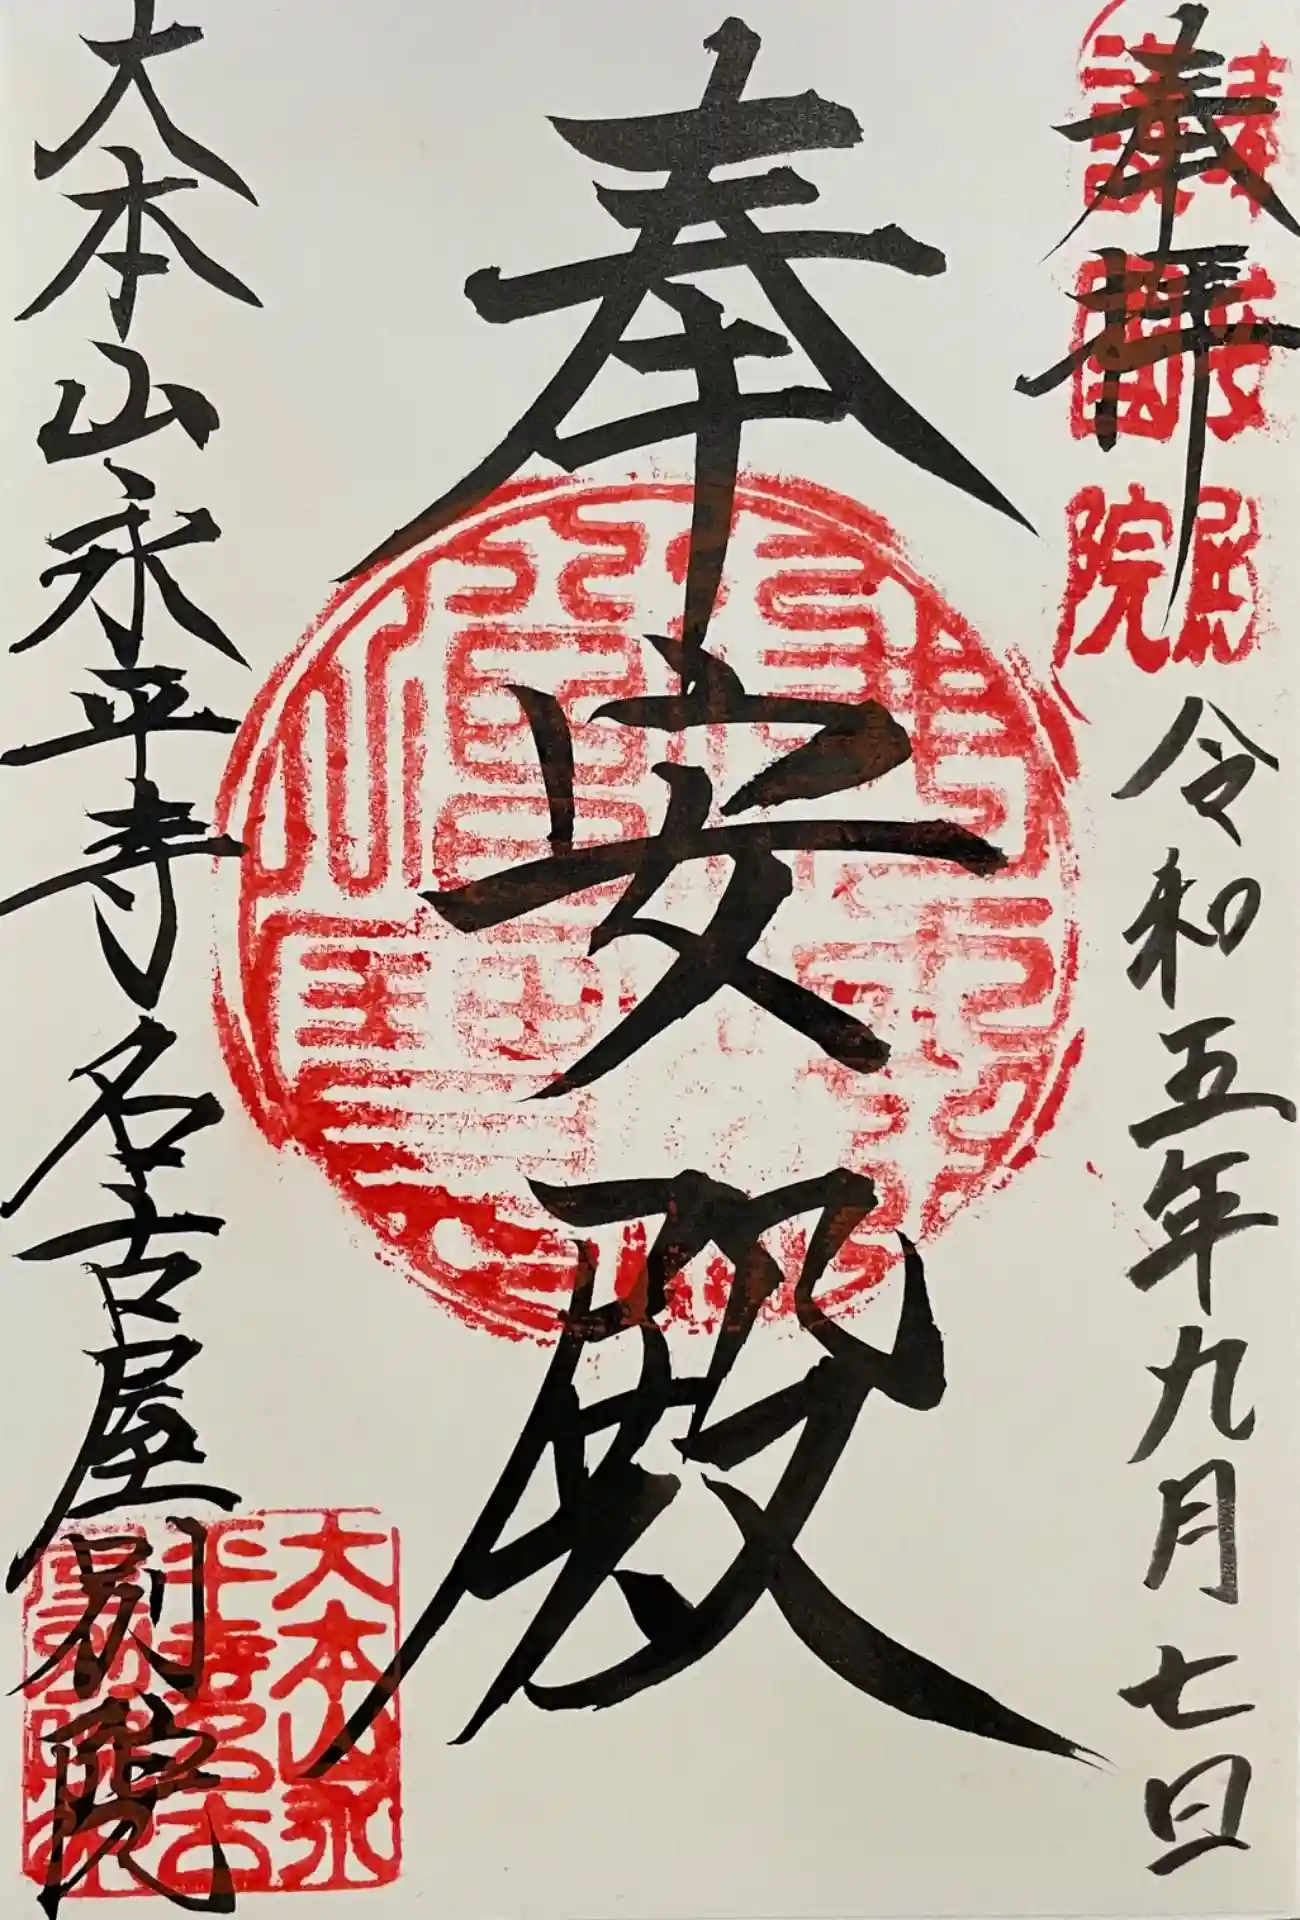 奉拝
令和五年九月七日
奉安殿
大本山永平寺名古屋別院
奉安殿
護國院
大本山永
平寺名古
屋別院